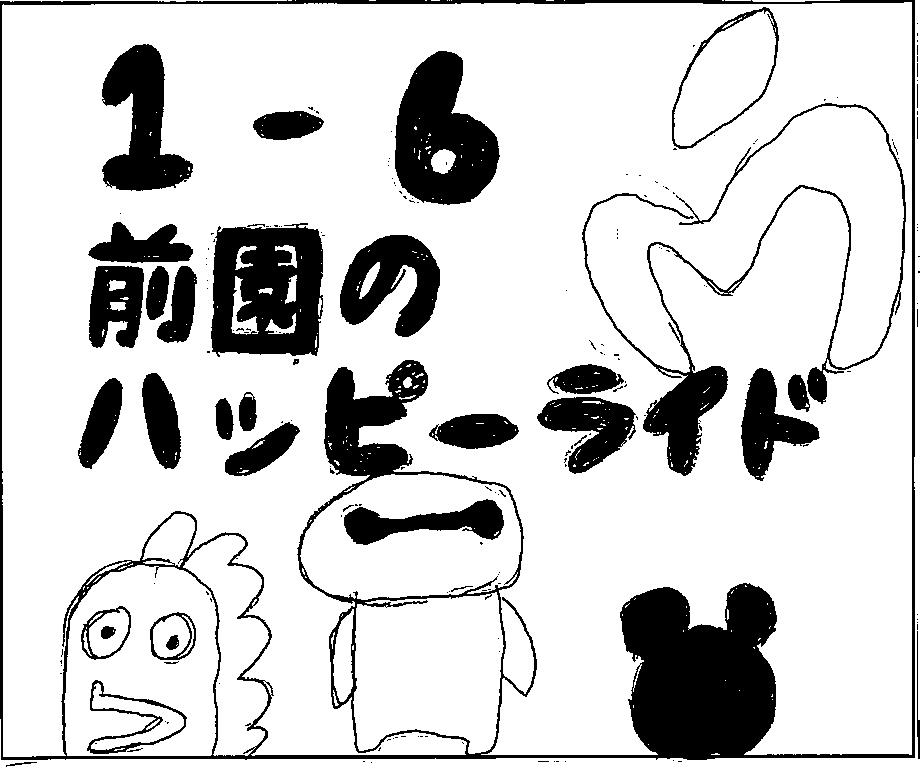 1-6
前園の
ハッピーライド